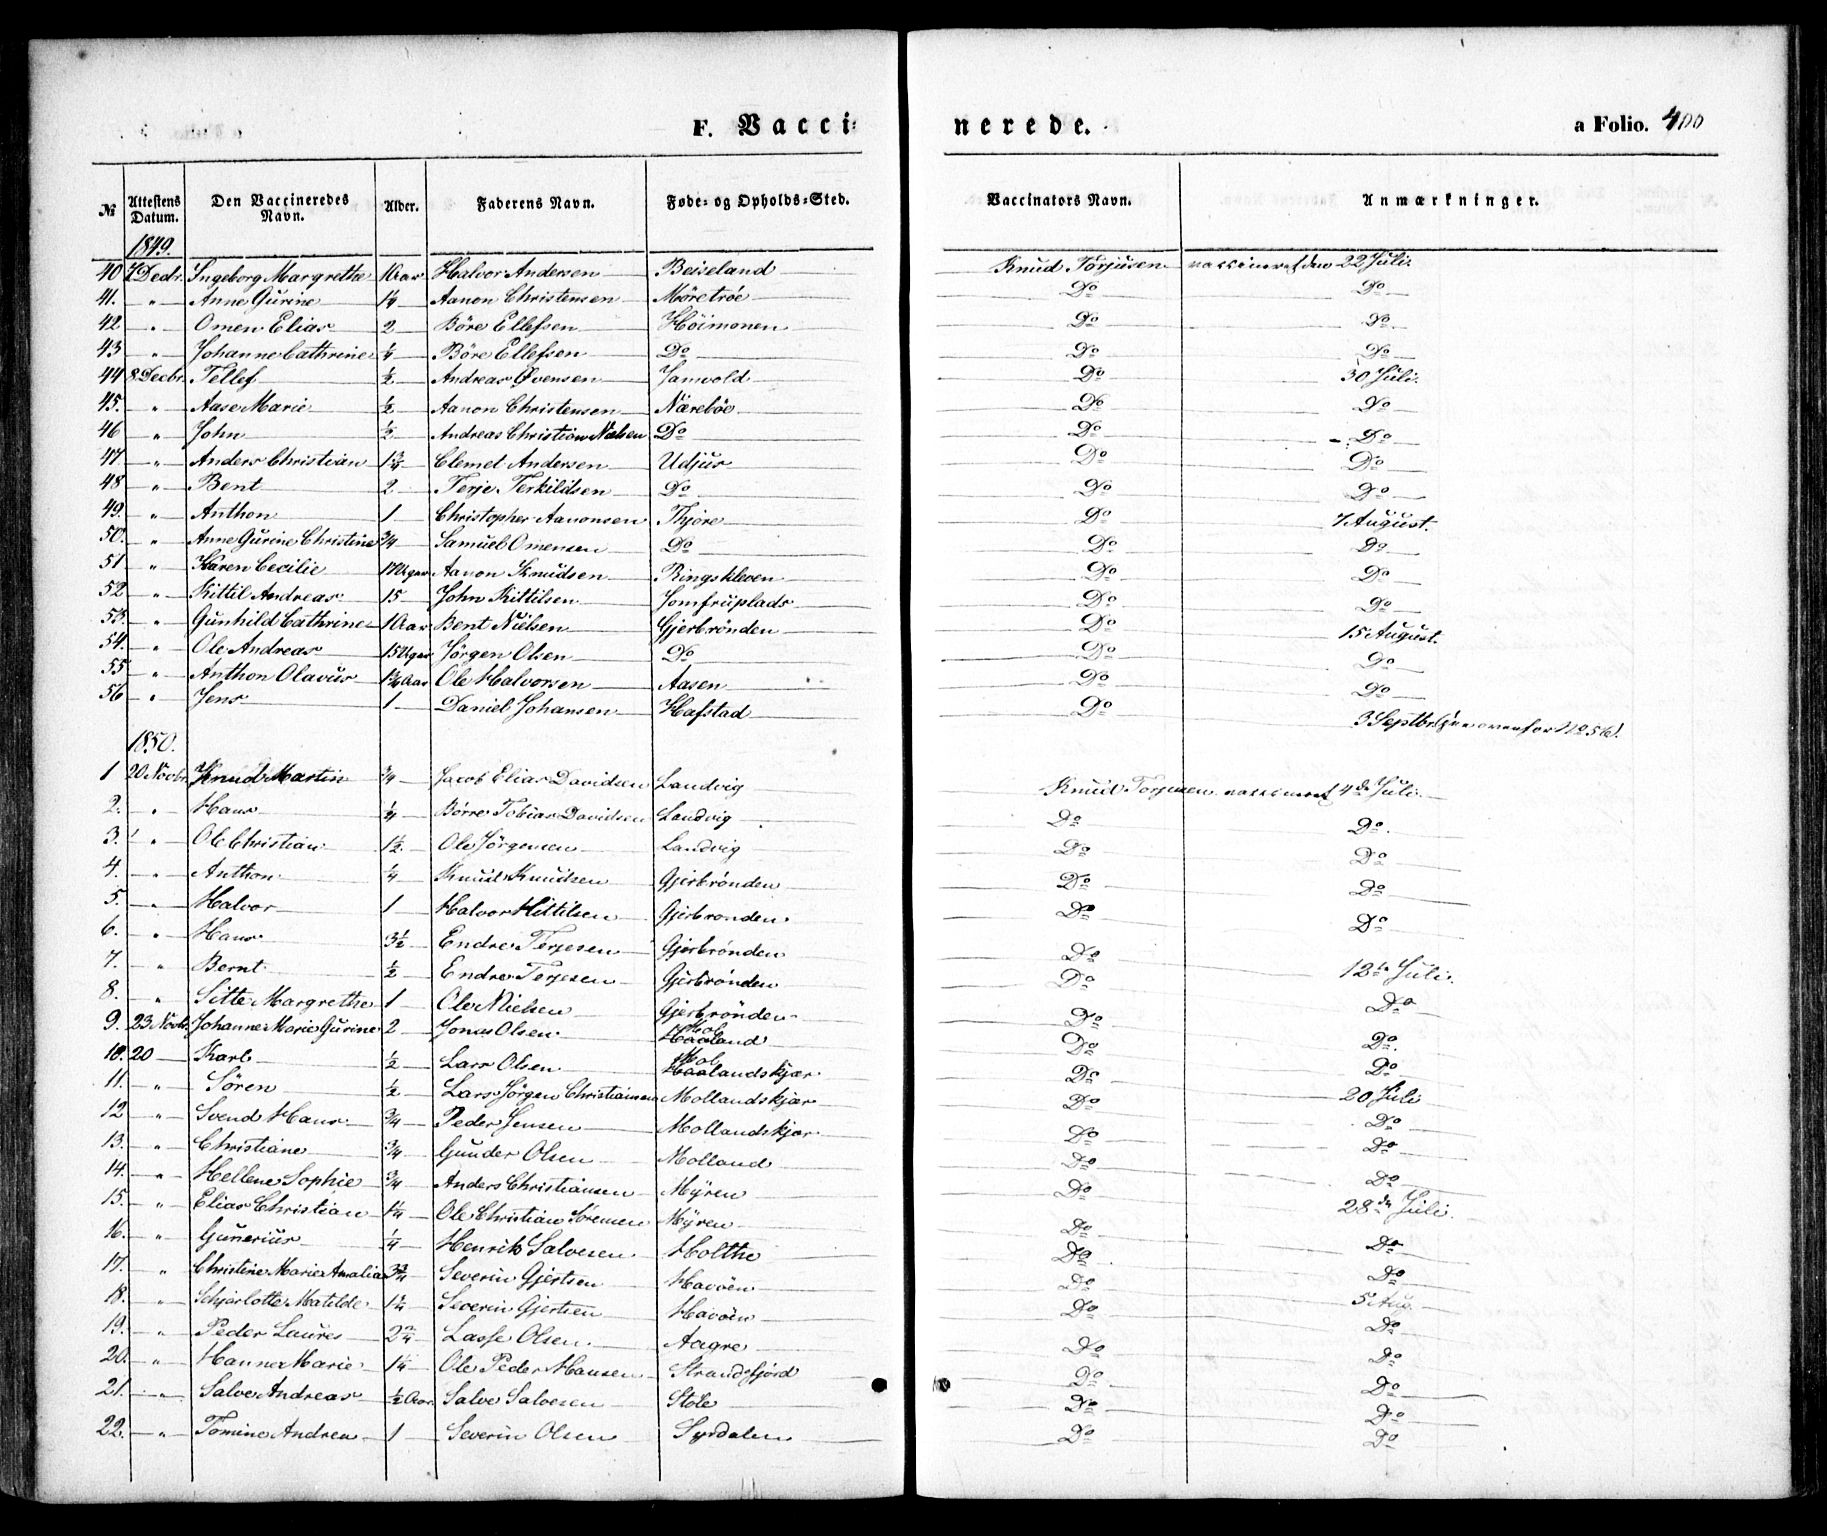 F. Vacci- nerede. a Folio. 400
№ Attestens Datum. Den Vaccineredes Navn. Alder. Faderens Navn. Føde- og Opholds-Sted. Vaccinators Navn. Anmærkninger.
1849.
40 7 Decbr. Ingeborg Margrethe 1 Aar Halvor Andersen Beiseland Knud Torjusen vaccineret den 22 Juli.
41. " Anne Gurine 1¼ Aanon Christensen Møretrøe Do Do
42 " Omen Elias 2 Børe Ellefsen Höimonen Do Do
43 " Johanne Cathrine ¼ Børe Ellefsen Do Do Do
44 8 Decbr. Tellef ½ Andreas Øvensen Jamvold Do 30 Juli.
45. " Aase Marie ½ Aanon Christensen Nærebøe Do Do
46 " John ½ Andreas Christian Nielsen Do Do Do
47. " Anders Christian 1¾ Clemet Andersen Udjur Do Do
48 " Bent 2 Terje Terkildsen Do Do Do
49. " Anthon 1 Christopher Aanonsen Thjøre Do 7 August.
50. " Anne Gurine Christine ¾ Samuel Omensen Do Do Do
51 " Karen Cecilie 17 Uger Aanon Knudsen Ringskleven Do Do
52 " Kittil Andreas 15 John Kittilsen Jomfruplads Do Do
53. " Gunhild Cathrine 1 Aar Bent Nielsen Gjerbrönden Do 15 August.
54. " Ole Andreas 15 Uger Jørgen Olsen Do Do Do
55 " Anthon Olavus Aar Ole Halvorsen Aasen Do Do
56 " Jens 1 Daniel Johansen Hafstad Do 3 Septbr. ovenfor No 56).
1850.
1 20 Novbr. Knud Martin ¾ Jacob Elias Davidsen Landvig Knud Torjusen vaccineret 4de Juli.
2. " Hans ¼ Börre Tobias Davidsen Landvig Do Do.
3. " Ole Christian 1½ Ole Jörgensen Landvig Do Do
4. " Anthon ¼ Knud Knudsen Gjerbrönden Do Do
5. " Halvor 1 Halvor Kittilsen Gjerbronden Do Do
6. " Hans 3½ Endre Terjesen Gjerbrönden Do 12te Juli.
7. " Bernt ½ Endre Terjesen Gjerbrönden Do Do
8. " Sitte Margrethe 1 Ole Nielsen Gjerbrönden Do Do.
9. 23 Novbr. Johanne Marie Gurine 2 Jonas Olsen Molland Do Do
10. 20 Karl ½ Lars Olsen Mollandskjær Do 20 Juli
11. " Sören ½ Lars Jörgen Christiansen Mollandskjær Do Do
12 " Svend Hans ¾ Peder Jensen Mollandskjær Do Do
13. " Christiane ¾ Gunder Olsen Molland Do Do
14. " Hellene Sophie ¾ Anders Christiansen Myren Do 28de Juli.
15. " Elias Christian 1¼ Ole Christian Sörensen Myren Do Do
16. " Gunerius ¼ Henrik Salvesen Holthe Do Do
17. " Christine Marie Amalia 3¾ Severin Gjertsen Havöen Do 5 Aug.
18. " Schjarlotte Matilde 1¼ Severin Gjertsen Havöen Do Do
19. " Peder Laures 2¾ Lasse Olsen Aagre Do Do
20. " Hanne Marie 1¼ Ole Peder Hansen Strandfjörd Do Do
21. " Salve Andreas ½ Aar Salve Salvesen Stöle Do Do
22. " Tomine Andrea 1 Severin Olsen Syrdalen Do Do